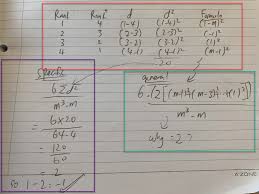 Rank Rank² d d² Formula
1 4 (1-4) (1-4)² (1-m)²
2 3 (2-3) (2-3)² (-1)²
3 2 (3-2) (3-2)² (1)²
4 1 (4-1) (4-1)² (m-1)²
20
Specific
6Σd²
m³-m
= 6×20
64-4
= 120
60
= 2
so 1-2=-1
general
6·(2[(m-1)²+(m-3)²...+(1)²])
m³-m
why = 2?